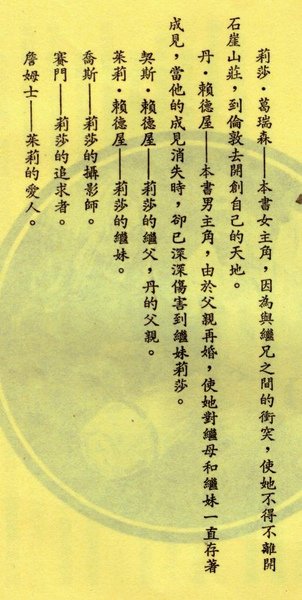 莉莎·葛瑞森——本書女主角，因為與繼兄之間的衝突，使她不得不離開
石崖山莊，到倫敦去開創自己的天地。
丹·賴德屋——本書男主角，由於父親再婚，使她對繼母和繼妹一直存著
成見，當他的成見消失時，卻已深深傷害到繼妹莉莎。
契斯·賴德屋——莉莎的繼父，丹的父親。
茱莉·賴德屋——莉莎的繼妹。
喬斯——莉莎的攝影師。
賽門——莉莎的追求者。
詹姆士——茱莉的愛人。